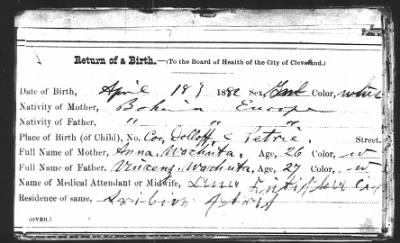 Return of a Birth.—(To the Board of Health of the City of Cleveland.)
Date of Birth, April 18 1882 Sex, Color, white
Nativity of Mother, Bohemia Europe
Nativity of Father, " " "
Place of Birth (of Child), No. Cor. Dolloff & Petrie Street.
Full Name of Mother, Anna Wachuta, Age, 26 Color, w
Full Name of Father, Vincenz Wachuta, Age, 27 Color, w
Name of Medical Attendant or Midwife,
Residence of same,
(OVER.)